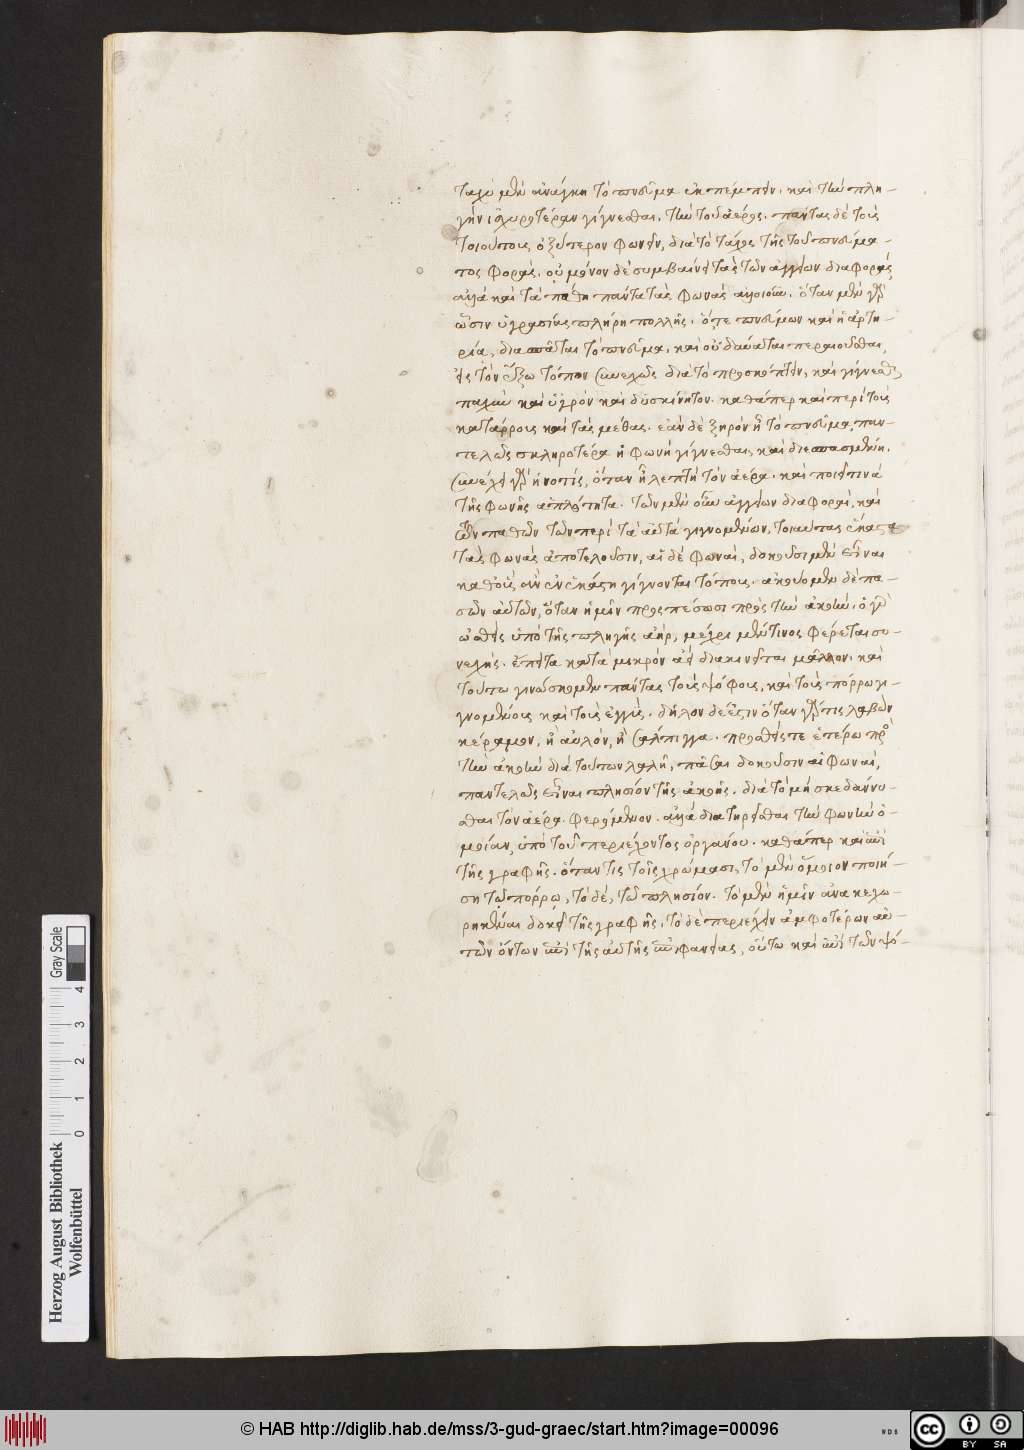 ταχὺ μὲν ἀνάγκη τὸ πνεῦμα ἐκπέμπειν, καὶ τὴν πλη-
γὴν ἰσχυροτέραν γίγνεσθαι, τὴν τοῦ ἀέρος. πάντας δὲ τοὺς
τοιούτους ὀξύτερον φωνεῖν, διὰ τὸ τάχος τῆς τοῦ πνεύμα-
τος φορᾶς. οὐ μόνον δὲ συμβαίνει τὰς τῶν ἀγγείων διαφορὰς
ἀλλὰ καὶ τὰ πάθη πάντα τὰς φωνὰς ἀλλοιοῦν. ὅταν μὲν γὰρ
ὦσιν ὑγρασίας πλήρη πολλῆς. ὅτε πνεύμων καὶ ἡ ἀρτη-
ρία, διασπᾶται τὸ πνεῦμα, καὶ οὐ δύναται περαιοῦσθαι,
εἰς τὸν ἔξω τόπον συνεχῶς διὰ τὸ προσκόπτειν, καὶ γίγνεσθαι
παχὺν καὶ ὑγρὸν καὶ δυσκίνητον. καθάπερ καὶ περὶ τοὺς
κατάρρους καὶ τὰς μέθας. ἐὰν δὲ ξηρὸν ᾖ τὸ πνεῦμα, παν-
τελῶς σκληροτέρα ἡ φωνὴ γίγνεσθαι, καὶ διεσπασμένη.
συνέχει γὰρ ἡ νοτὶς, ὅταν ᾖ λεπτὴ τὸν ἀέρα. καὶ ποιεῖ τινὰ
τῆς φωνῆς ἁπλότητα. τῶν μὲν οὖν ἀγγείων διαφοραὶ, καὶ
τῶν παθῶν τῶν περὶ τὰ αὐτὰ γιγνομένων, τοιαύτας ἕκαστα
τὰς φωνὰς ἀποτελοῦσιν, αἱ δὲ φωναὶ, δοκοῦσι μὲν εἶναι
καθ' οὓς ἂν ἐν ἑκάστῃ γίγνονται τόπους. ἀκούομεν δὲ πα-
σῶν αὐτῶν, ὅταν ἡμῖν προσπέσωσι πρὸς τὴν ἀκοήν. ὁ γὰρ
ὠσθεὶς ὑπὸ τῆς πληγῆς ἀὴρ, μέχρι μέν τινος φέρεται συ-
νεχής. ἔπειτα κατὰ μικρὸν ἀεὶ διακινεῖται μᾶλλον. καὶ
τούτῳ γινώσκομεν πάντας τοὺς ψόφους, καὶ τοὺς πόρρω γι-
γνομένους καὶ τοὺς ἐγγύς. δῆλον δέ ἐστιν ὅταν γάρ τις λαβὼν
κέραμον, ἢ αὐλὸν, ἢ σάλπιγγα. προσθείς τε ἑτέρῳ πρὸς
τὴν ἀκοὴν διὰ τούτων λαλῇ, πᾶσαι δοκοῦσιν αἱ φωναὶ,
παντελῶς εἶναι πλησίον τῆς ἀκοῆς. διὰ τὸ μὴ σκεδάννυ-
σθαι τὸν ἀέρα φερόμενον. ἀλλὰ διατηρεῖσθαι τὴν φωνὴν ὁ-
μοίαν, ὑπὸ τοῦ περιέχοντος ὀργάνου. καθάπερ καὶ ἐπὶ
τῆς γραφῆς. ὅταν τις τοῖς χρώμασι, τὸ μὲν ὅμοιον ποιή-
σῃ τῷ πόρρῳ, τὸ δὲ, τῷ πλησίον. τὸ μὲν ἡμῖν ἀνακεχω-
ρηκέναι δοκεῖ τῆς γραφῆς, τὸ δὲ περιέχειν ἀμφοτέρων αὐ-
τῶν ὄντων ἐπὶ τῆς αὐτῆς ἐπιφανείας, οὕτω καὶ ἐπὶ τῶν ψό-
Herzog August Bibliothek
Wolfenbüttel
0 1 2 3 4
Gray Scale
© HAB http://diglib.hab.de/mss/3-gud-graec/start.htm?image=00096
WDB
cc BY SA